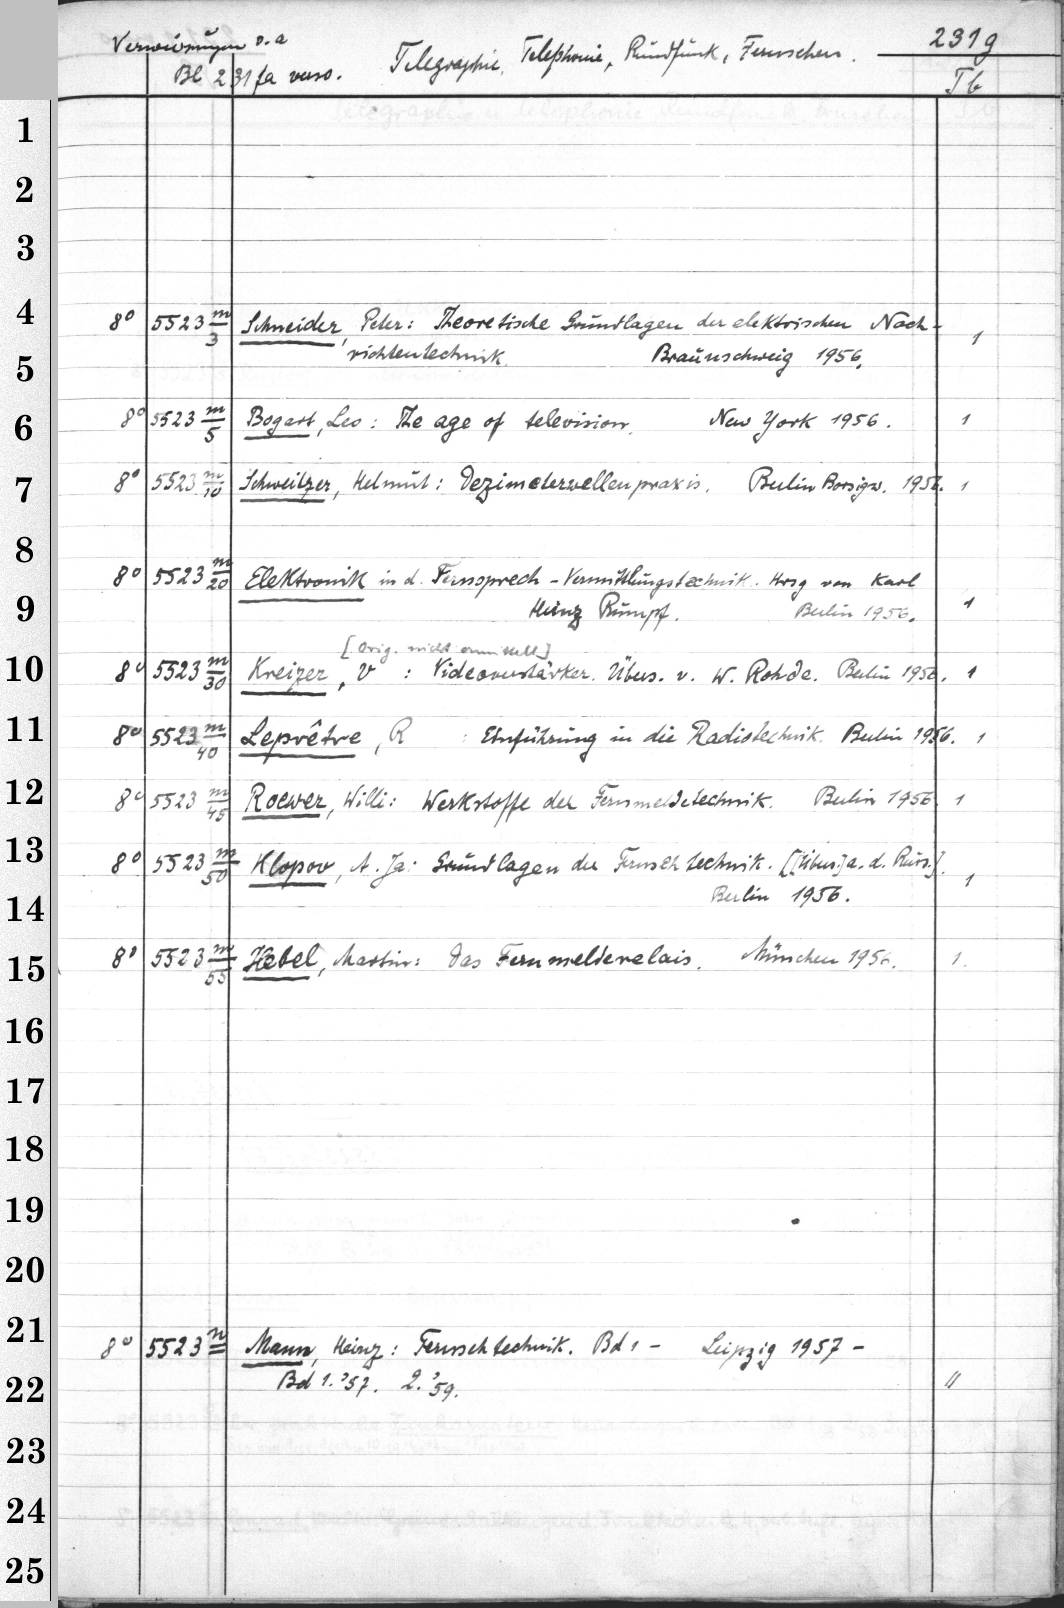 Verweisungen s. a
Bl 231fa verso.
Telegraphie, Telephonie, Rundfunk, Fernsehen.
231g
Tb
1
2
3
4
8° 5523 m/3 Schneider, Peter: Theoretische Grundlagen der elektrischen Nach-
richtentechnik. Braunschweig 1956. 1
5
6
8° 5523 m/5 Bogart, Leo: The age of television. New York 1956. 1
7
8° 5523 m/10 Schweitzer, Helmut: Dezimeterwellenpraxis. Berlin Borsigw. 1956. 1
8
8° 5523 m/20 Elektronik in d. Fernsprech-Vermittlungstechnik. Hrsg von Karl
9
Heinz Rumpf. Berlin 1956. 1
[Orig. nicht ermittelt]
10
8° 5523 m/30 Kreizer, V : Videoverstärker. Übers. v. W. Rohde. Berlin 1956. 1
11
8° 5523 m/40 Leprêtre, R : Einführung in die Radiotechnik. Berlin 1956. 1
12
8° 5523 m/45 Roewer, Willi: Werkstoffe der Fernmeldetechnik. Berlin 1956. 1
13
8° 5523 m/50 Klopov, A. Ja: Grundlagen der Fernsehtechnik. [[Übers.] a. d. Russ.].
14
Berlin 1956. 1
15
8° 5523 m/55 Hebel, Martin: Das Fernmelderelais. München 1956. 1.
16
17
18
19
20
21
8° 5523 n Mann, Heinz: Fernsehtechnik. Bd 1 - Leipzig 1957 -
22
Bd 1. '57. 2. '59. 11
23
24
25